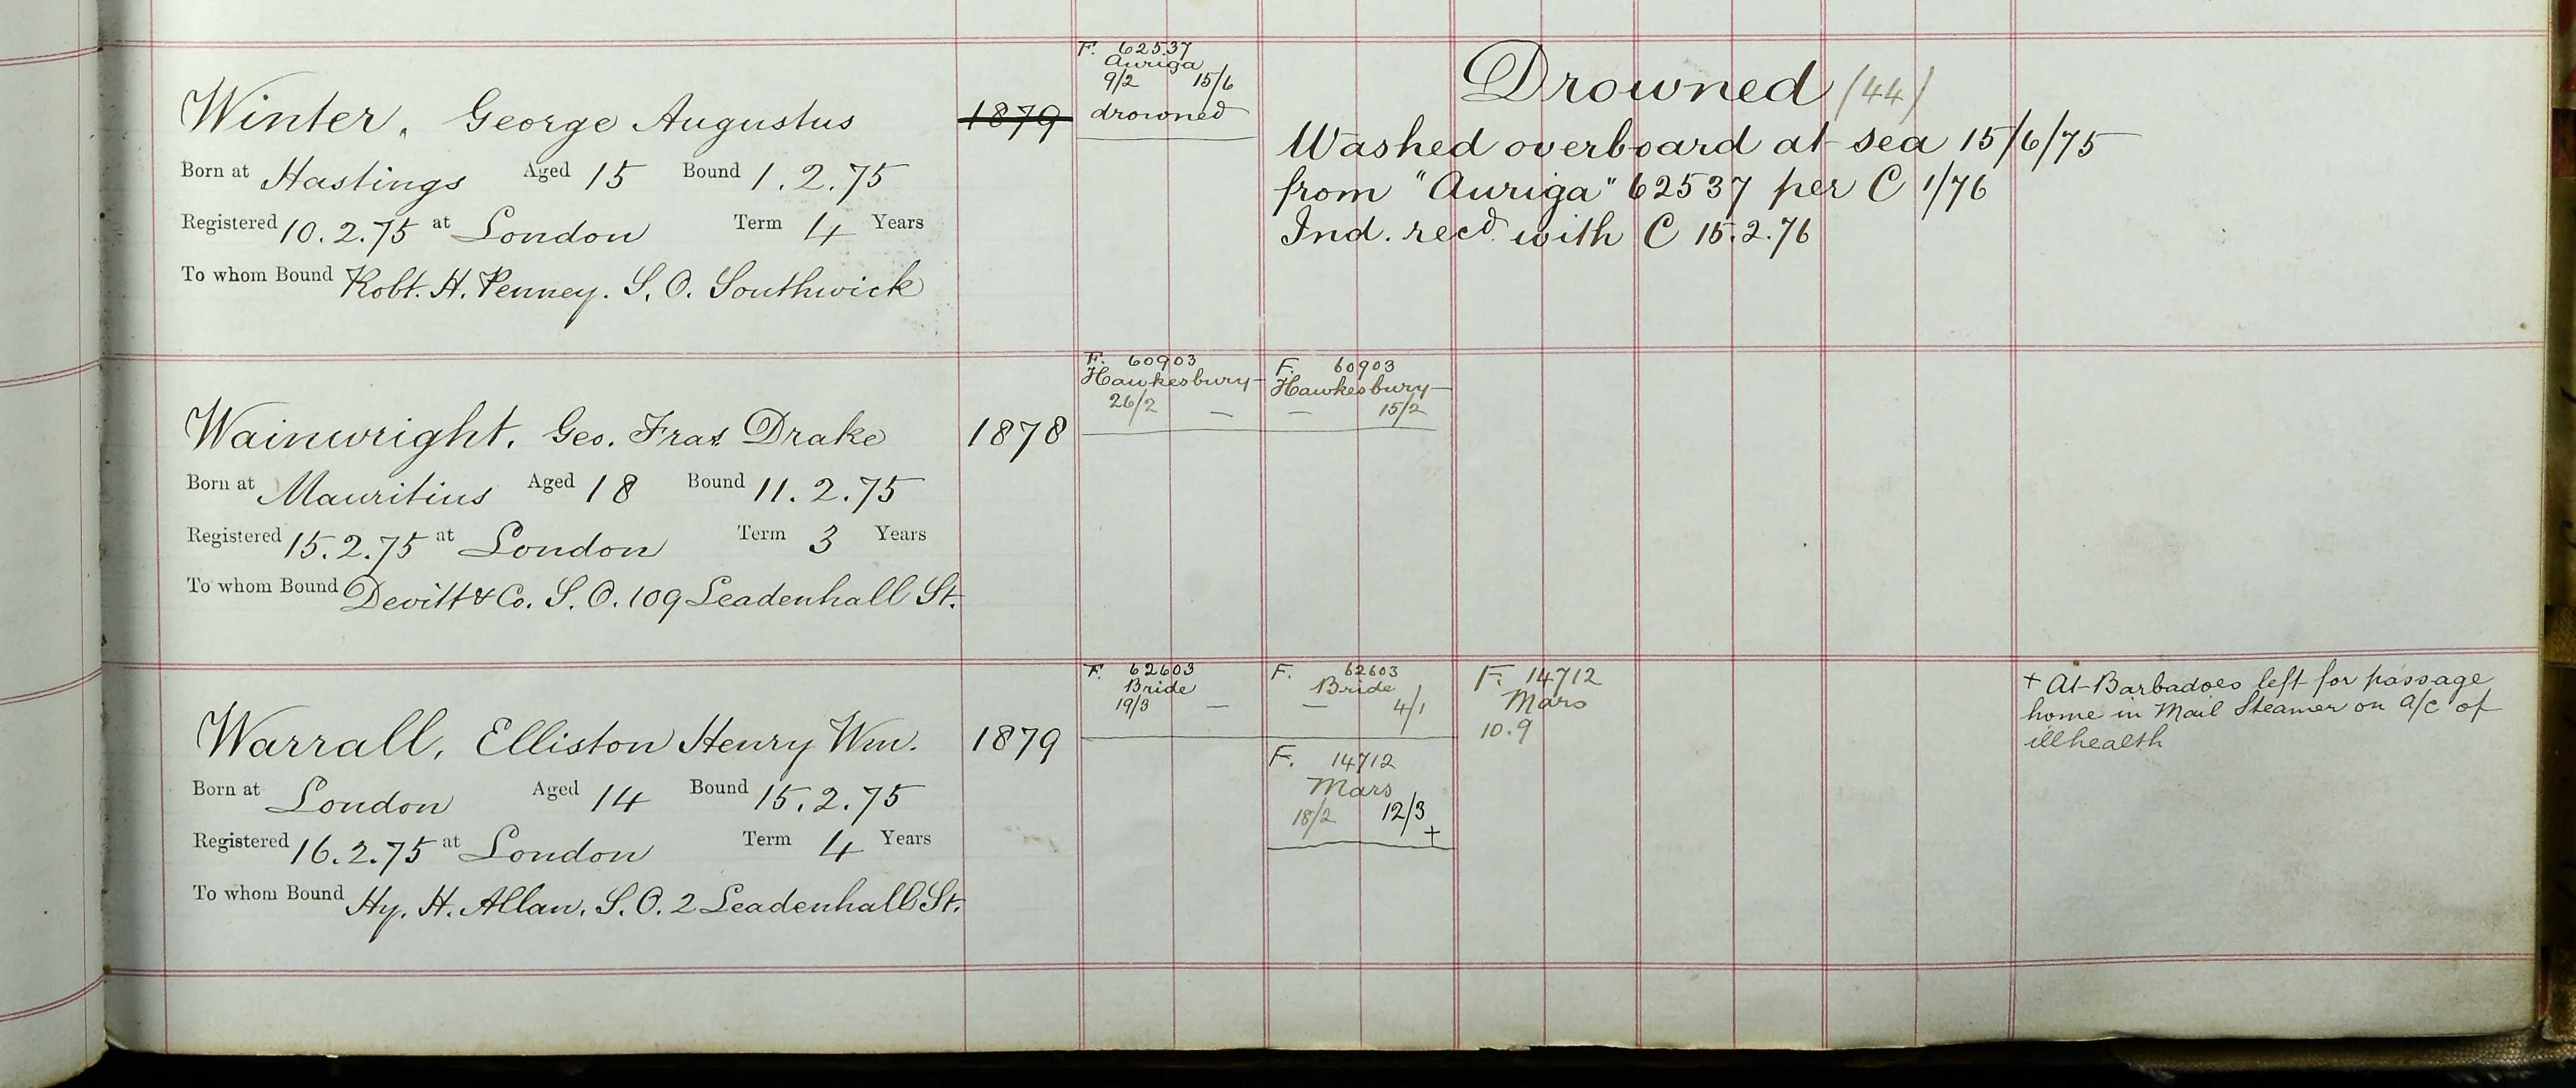 F. 62537
Auriga
9/2 15/6
drowned
Drowned (44)
Winter, George Augustus 1879
Washed overboard at sea 15/6/75
from "Auriga" 62537 per C 1/76
Ind. recd. with C 15.2.76
Born at Hastings Aged 15 Bound 1.2.75
Registered 10.2.75 at London Term 4 Years
To whom Bound Robt. H. Penney. S.O. Southwick
F. 60903
Hawkesbury
26/2 —
F. 60903
Hawkesbury
— 15/2
Wainwright, Geo. Fras Drake 1878
Born at Mauritius Aged 18 Bound 11.2.75
Registered 15.2.75 at London Term 3 Years
To whom Bound Devitt & Co. S.O. 109 Leadenhall St.
F. 62603
Bride
19/3 —
F. 62603
Bride
— 4/1
F. 14712
Mars
10.9
+ At Barbadoes left for passage
home in Mail Steamer on a/c of
illhealth
Warrall, Elliston Henry Wm. 1879
F. 14712
Mars
18/2 12/3
+
Born at London Aged 14 Bound 15.2.75
Registered 16.2.75 at London Term 4 Years
To whom Bound Hy. H. Allan. S.O. 2 Leadenhall St.